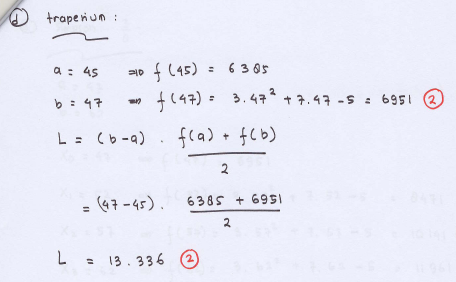 d trapezium :
a = 45 ⇒ f(45) = 6385
b = 47 ⇒ f(47) = 3.47² + 7.47 - 5 = 6951 ②
L = (b-a) . f(a) + f(b)
2
= (47-45) . 6385 + 6951
2
L = 13.336 ②